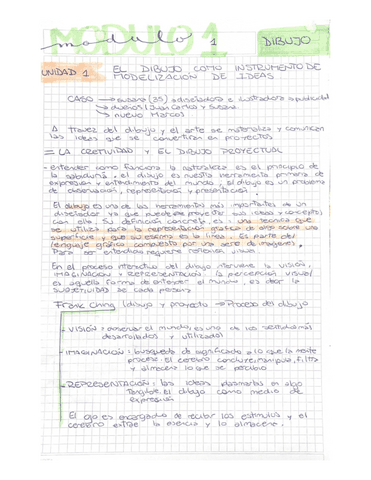 MODULO 1
modulo 1 DIBUJO
UNIDAD 1 EL DIBUJO COMO INSTRUMENTO DE
MODELIZACION DE IDEAS
CASO → susana (35) diseñadora e ilustradora
→ dueños (Juan Carlos y Susana
→ nuevo Marcos
A travez del dibujo y el arte se materializa y comunican
las ideas que se convertiran en proyectos
= LA CREATIVIDAD Y EL DIBUJO PROYECTUAL
- entender como funciona la naturaleza es el principio de
la sabiduria. el dibujo es nuestra herramienta primera de
expresion y entendimiento del mundo, el dibujo es un problema
de observacion, representacion y presentacion.
El dibujo es una de las herramientas más importantes de un
diseñador ya que puede proyectar sus ideas y conceptos
con ella. Su definición concreta es: una tecnica que
se utiliza para la representación grafica de algo sobre una
superficie y que su esencia es la linea. Es parte del
lenguaje grafico compuesto por una serie de imagenes.
Para ser entendido requiere reflexion visual
En el proceso interactivo del dibujo interviene la VISION,
IMAGINACION Y REPRESENTACION, la percepción visual
es aquella forma de entender el mundo, es decir la
SUBJETIVIDAD de cada persona
Frank Ching (dibujo y proyecto → Proceso del dibujo
- VISION: observar el mundo, es uno de los sentidos más
desarrollados y utilizados
- IMAGINACION: busqueda de significado a lo que la mente
procesa. el cerebro conduce, manipula, filtra
y almacena lo que se percibio
- REPRESENTACION: las ideas plasmarlas en algo
tangible. el dibujo como medio de
expresión
El ojo es encargado de recibir los estimulos y el
cerebro extrae la esencia y lo almacena.